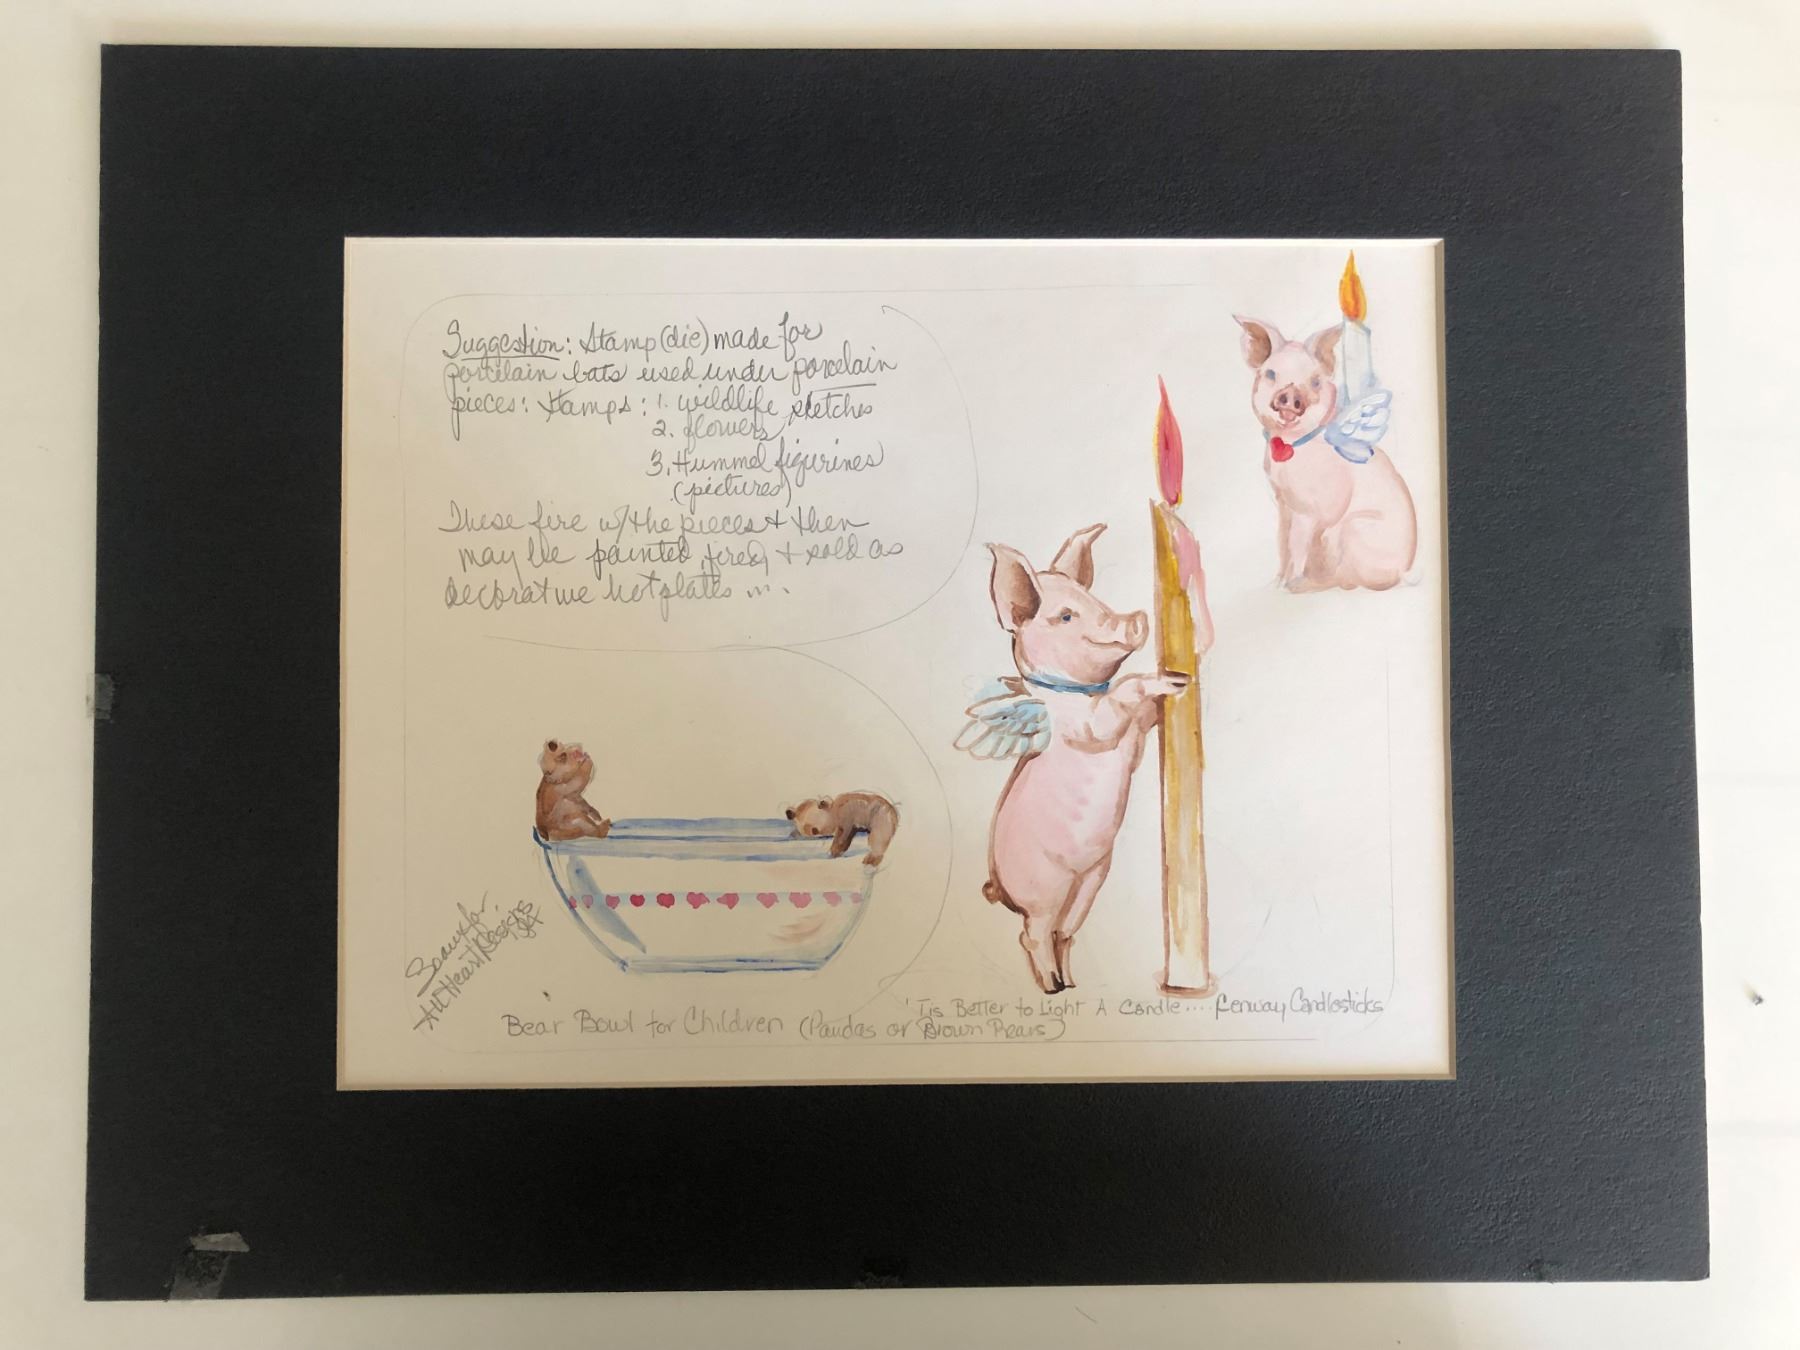 Suggestion: Stamp (die) made for
porcelain bats used under porcelain
pieces: Stamps: 1. wildlife sketches
2. flowers
3. Hummel figurines
(pictures)
These fire w/the pieces & then
may be painted, fired, & sold as
decorative hotplates ...
for
At Heart Designs
'84
'Tis Better to Light A Candle.... Fenway Candlesticks
Bear Bowl for Children (Pandas or Brown Bears)